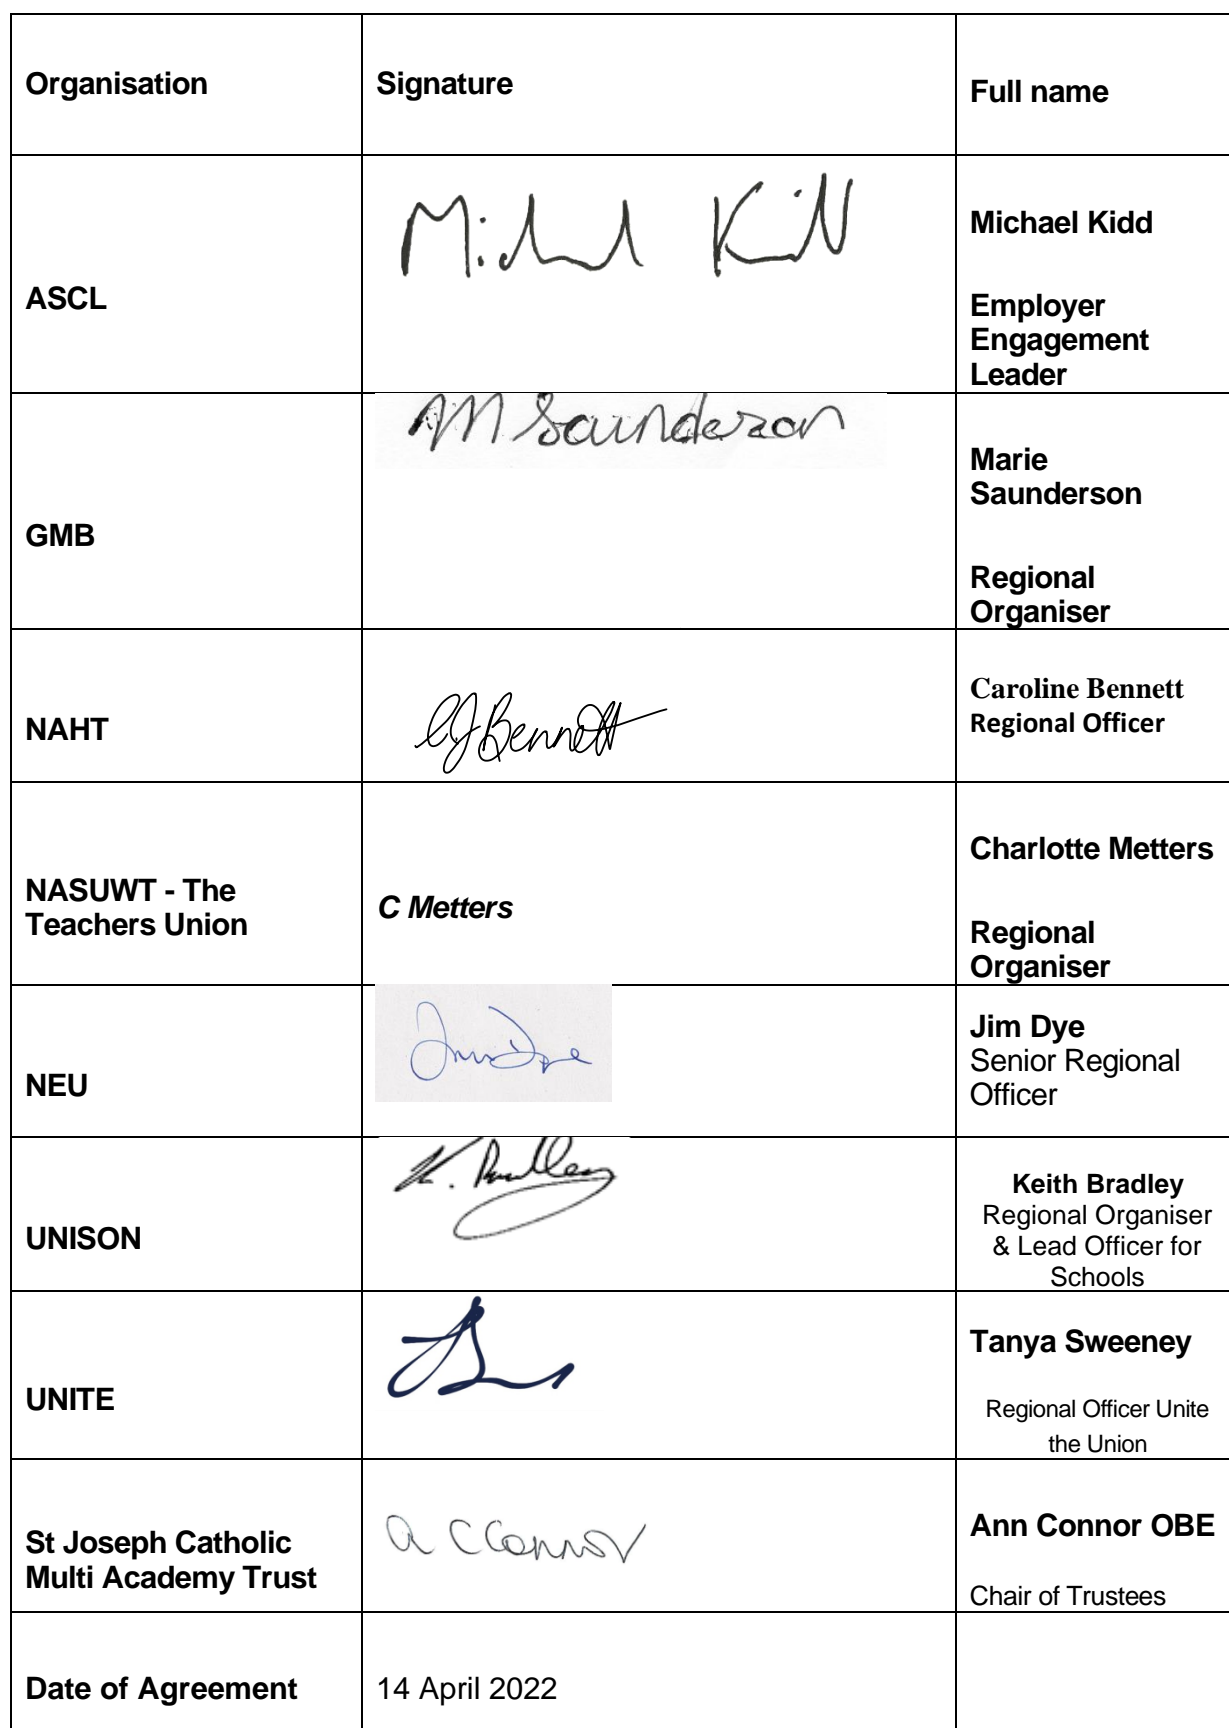 Organisation
Signature
Full name
ASCL
Michael Kidd
Michael Kidd
Employer
Engagement
Leader
GMB
M Saunderson
Marie
Saunderson
Regional
Organiser
NAHT
CJBennett
Caroline Bennett
Regional Officer
NASUWT - The
Teachers Union
C Metters
Charlotte Metters
Regional
Organiser
NEU
Jim Dye
Jim Dye
Senior Regional
Officer
UNISON
K. Bradley
Keith Bradley
Regional Organiser
& Lead Officer for
Schools
UNITE
Tanya Sweeney
Regional Officer Unite
the Union
St Joseph Catholic
Multi Academy Trust
a C Connor
Ann Connor OBE
Chair of Trustees
Date of Agreement
14 April 2022